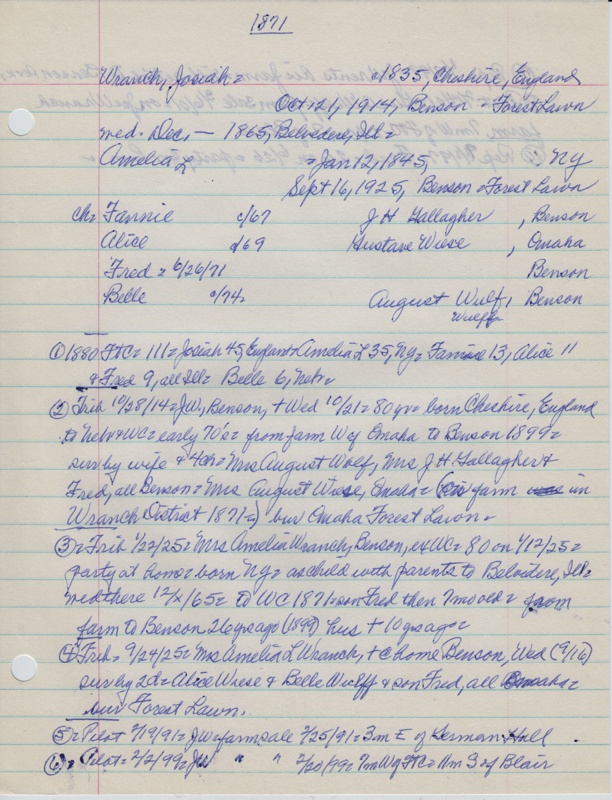 1871
Wranch, Josiah = c1835, Cheshire, England
Oct 21, 1914, Benson = Forest Lawn
wed. Dec, — 1865, Belvedere, Ill =
Amelia L = Jan 12, 1845, NY
Sept 16, 1925, Benson = Forest Lawn
ch = Fannie c/67 J H Gallagher , Benson
Alice c/69 Gustave Wiese , Omaha
Fred = 6/26/71 Benson
Belle c/74 = August Wulf, Benson
Wulff
① 1880 FTC = 111 = Josiah 45, England = Amelia L 35, NY = Fannie 13, Alice 11
& Fred 9, all Ill = Belle 6, Nebr =
② Trib 10/28/14 = JW, Benson, + Wed 10/21 = 80 yr = born Cheshire, England
to Nebr & WC = early 70's = from farm W of Omaha to Benson 1899 =
sur by wife & 4 ch = Mrs August Wolf, Mrs J H Gallagher &
Fred, all Benson = Mrs August Wiese, Omaha = (his farm in
Wranch District 1871 =) bur Omaha Forest Lawn =
③ = Trib 1/22/25 = Mrs Amelia Wranch, Benson, ex WC = 80 on 1/12/25 =
party at home = born NY = as child with parents to Belvidere, Ill =
wed there 12/x/65 = to WC 1871 = son Fred then 7 mo old = from
farm to Benson 26 yrs ago (1899) hus + 10 yrs ago =
④ Trib = 9/24/25 = Mrs Amelia L Wranch, + @ home Benson, Wed (9/16)
sur by 2d = Alice Wiese & Belle Wulff & son Fred, all Omaha =
bur Forest Lawn.
⑤ = Pilot 2/19/91 = JW = farm sale 2/25/91 = 3 m E of German Hall
⑥ = Pilot = 2/2/99 = JW " " 2/20/99 = 7 m W of FTC = 11 m S of Blair